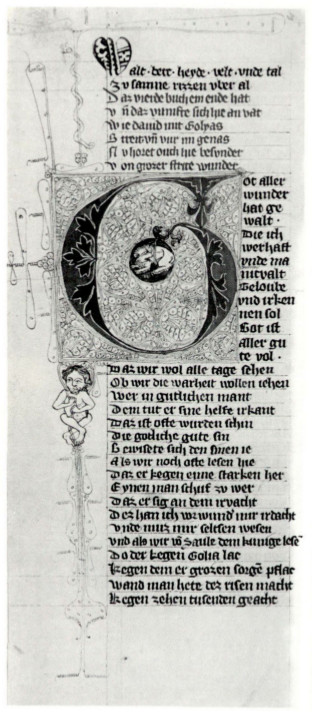 alt · berc · heyde · velt · vnde tal
Zv samne rizen vber al
Daz vierde buch ein ende hat
Vn daz vumfte sich hie an vat
Wie dauid mit Golyas
Streit vn vur im genas
Nv horet ouch hie besvnder
Von grozer strite wunder
Got aller
wunder
hat ge
walt ·
Die ich
werhaft
vnde ma
nicvalt
Geloube
vnd irken
nen sol
Got ist
aller gu
te vol ·
Daz wir wol alle tage sehen
Ob wir die warheit wollen iehen
Wer in gutlichen mant
Dem tut er sine helfe irkant
Daz ist ofte wurden schin
Die gotliche gute sin
Bewisete sich den sinen ie
Als wir noch ofte lesen hie
Daz er kegen eyme starken her
Eynen man schuf zv wer
Daz er sig an dem irvacht
Des han ich vor wund'mir irdacht
Vnde muz mir seltsen wesen
Vnd als wir vo Saule dem kunige lese
Do der kegen Golia lac
Kegen dem er grozen sorge pflac
Wand man hete des risen macht
Kegen zehen tusenden geacht